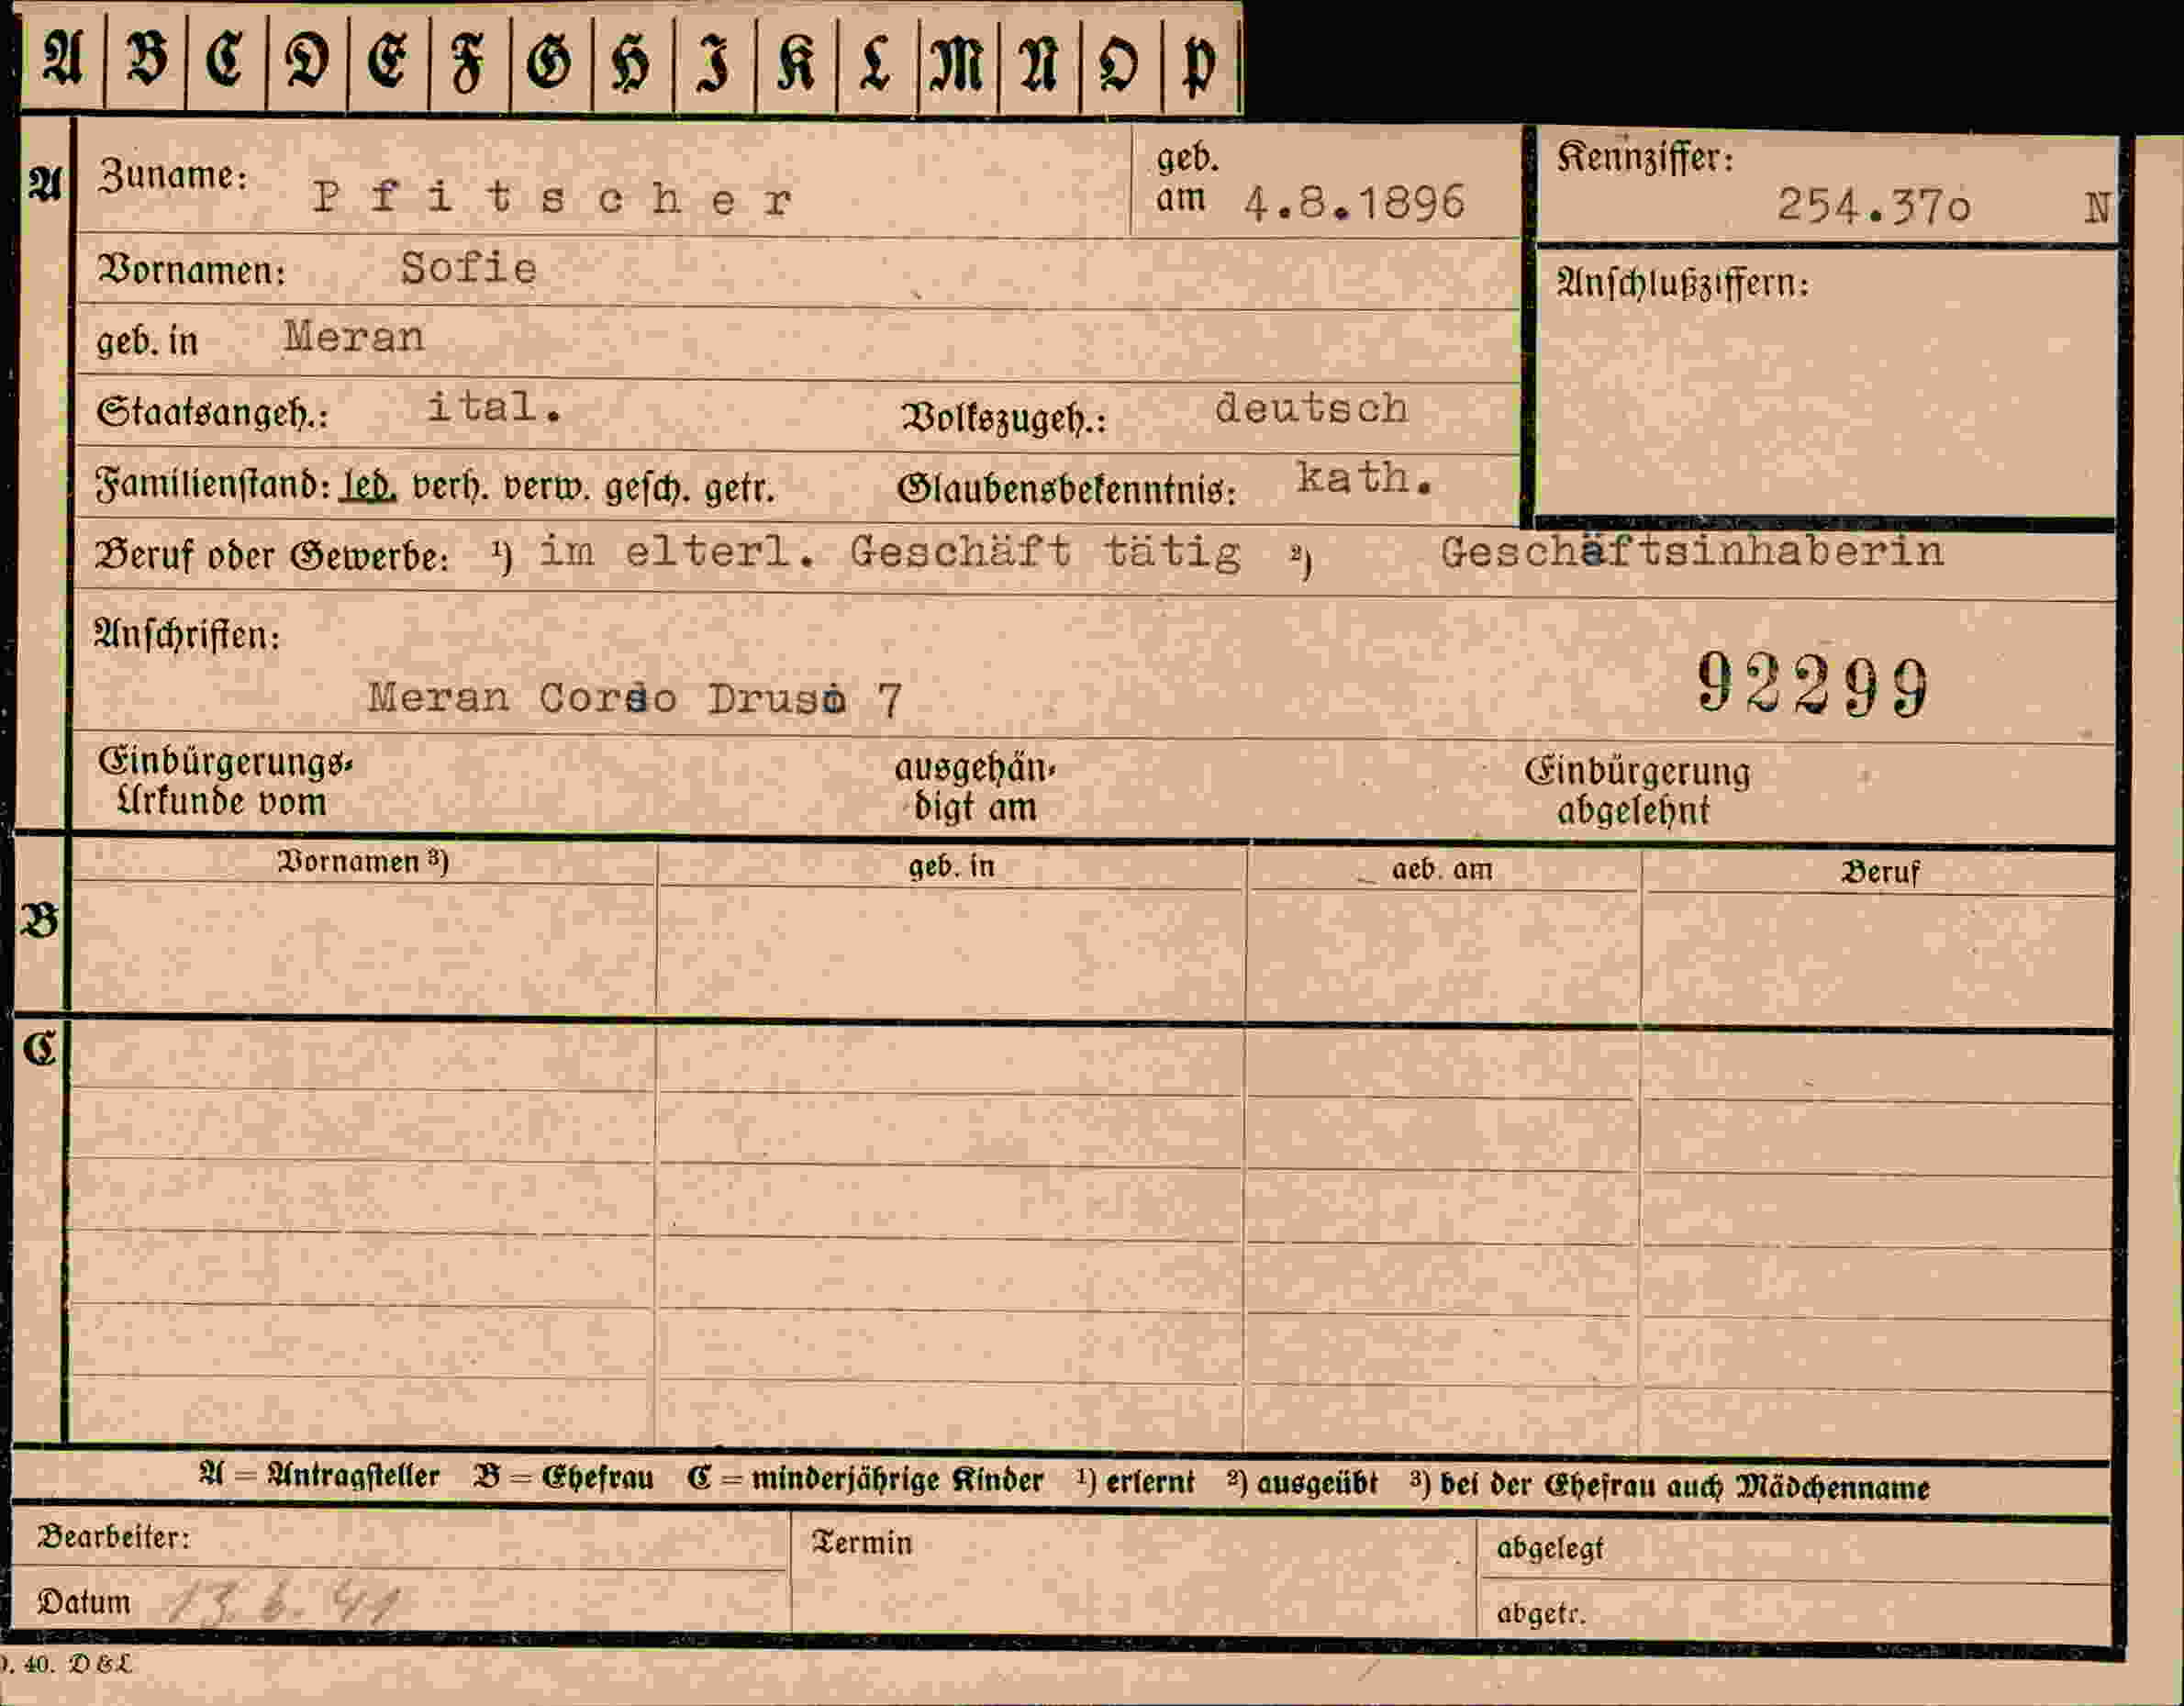 A B C D E F G H I K L M N O P
A Zuname: Pfitscher geb. am 4.8.1896 Kennziffer: 254.370 N
Vornamen: Sofie Anschlußziffern:
geb. in Meran
Staatsangeh.: ital. Volkszugeh.: deutsch
Familienstand: led. verh. verw. gesch. getr. Glaubensbekenntnis: kath.
Beruf oder Gewerbe: ¹) im elterl. Geschäft tätig ²) Geschäftsinhaberin
Anschriften:
Meran Corso Druso 7 92299
Einbürgerungs- ausgehän- Einbürgerung
Urkunde vom digt am abgelehnt
Vornamen ³) geb. in geb. am Beruf
B
C
A = Antragsteller B = Ehefrau C = minderjährige Kinder ¹) erlernt ²) ausgeübt ³) bei der Ehefrau auch Mädchenname
Bearbeiter: Termin abgelegt
Datum 13.6.41 abgetr.
. 40. D & L